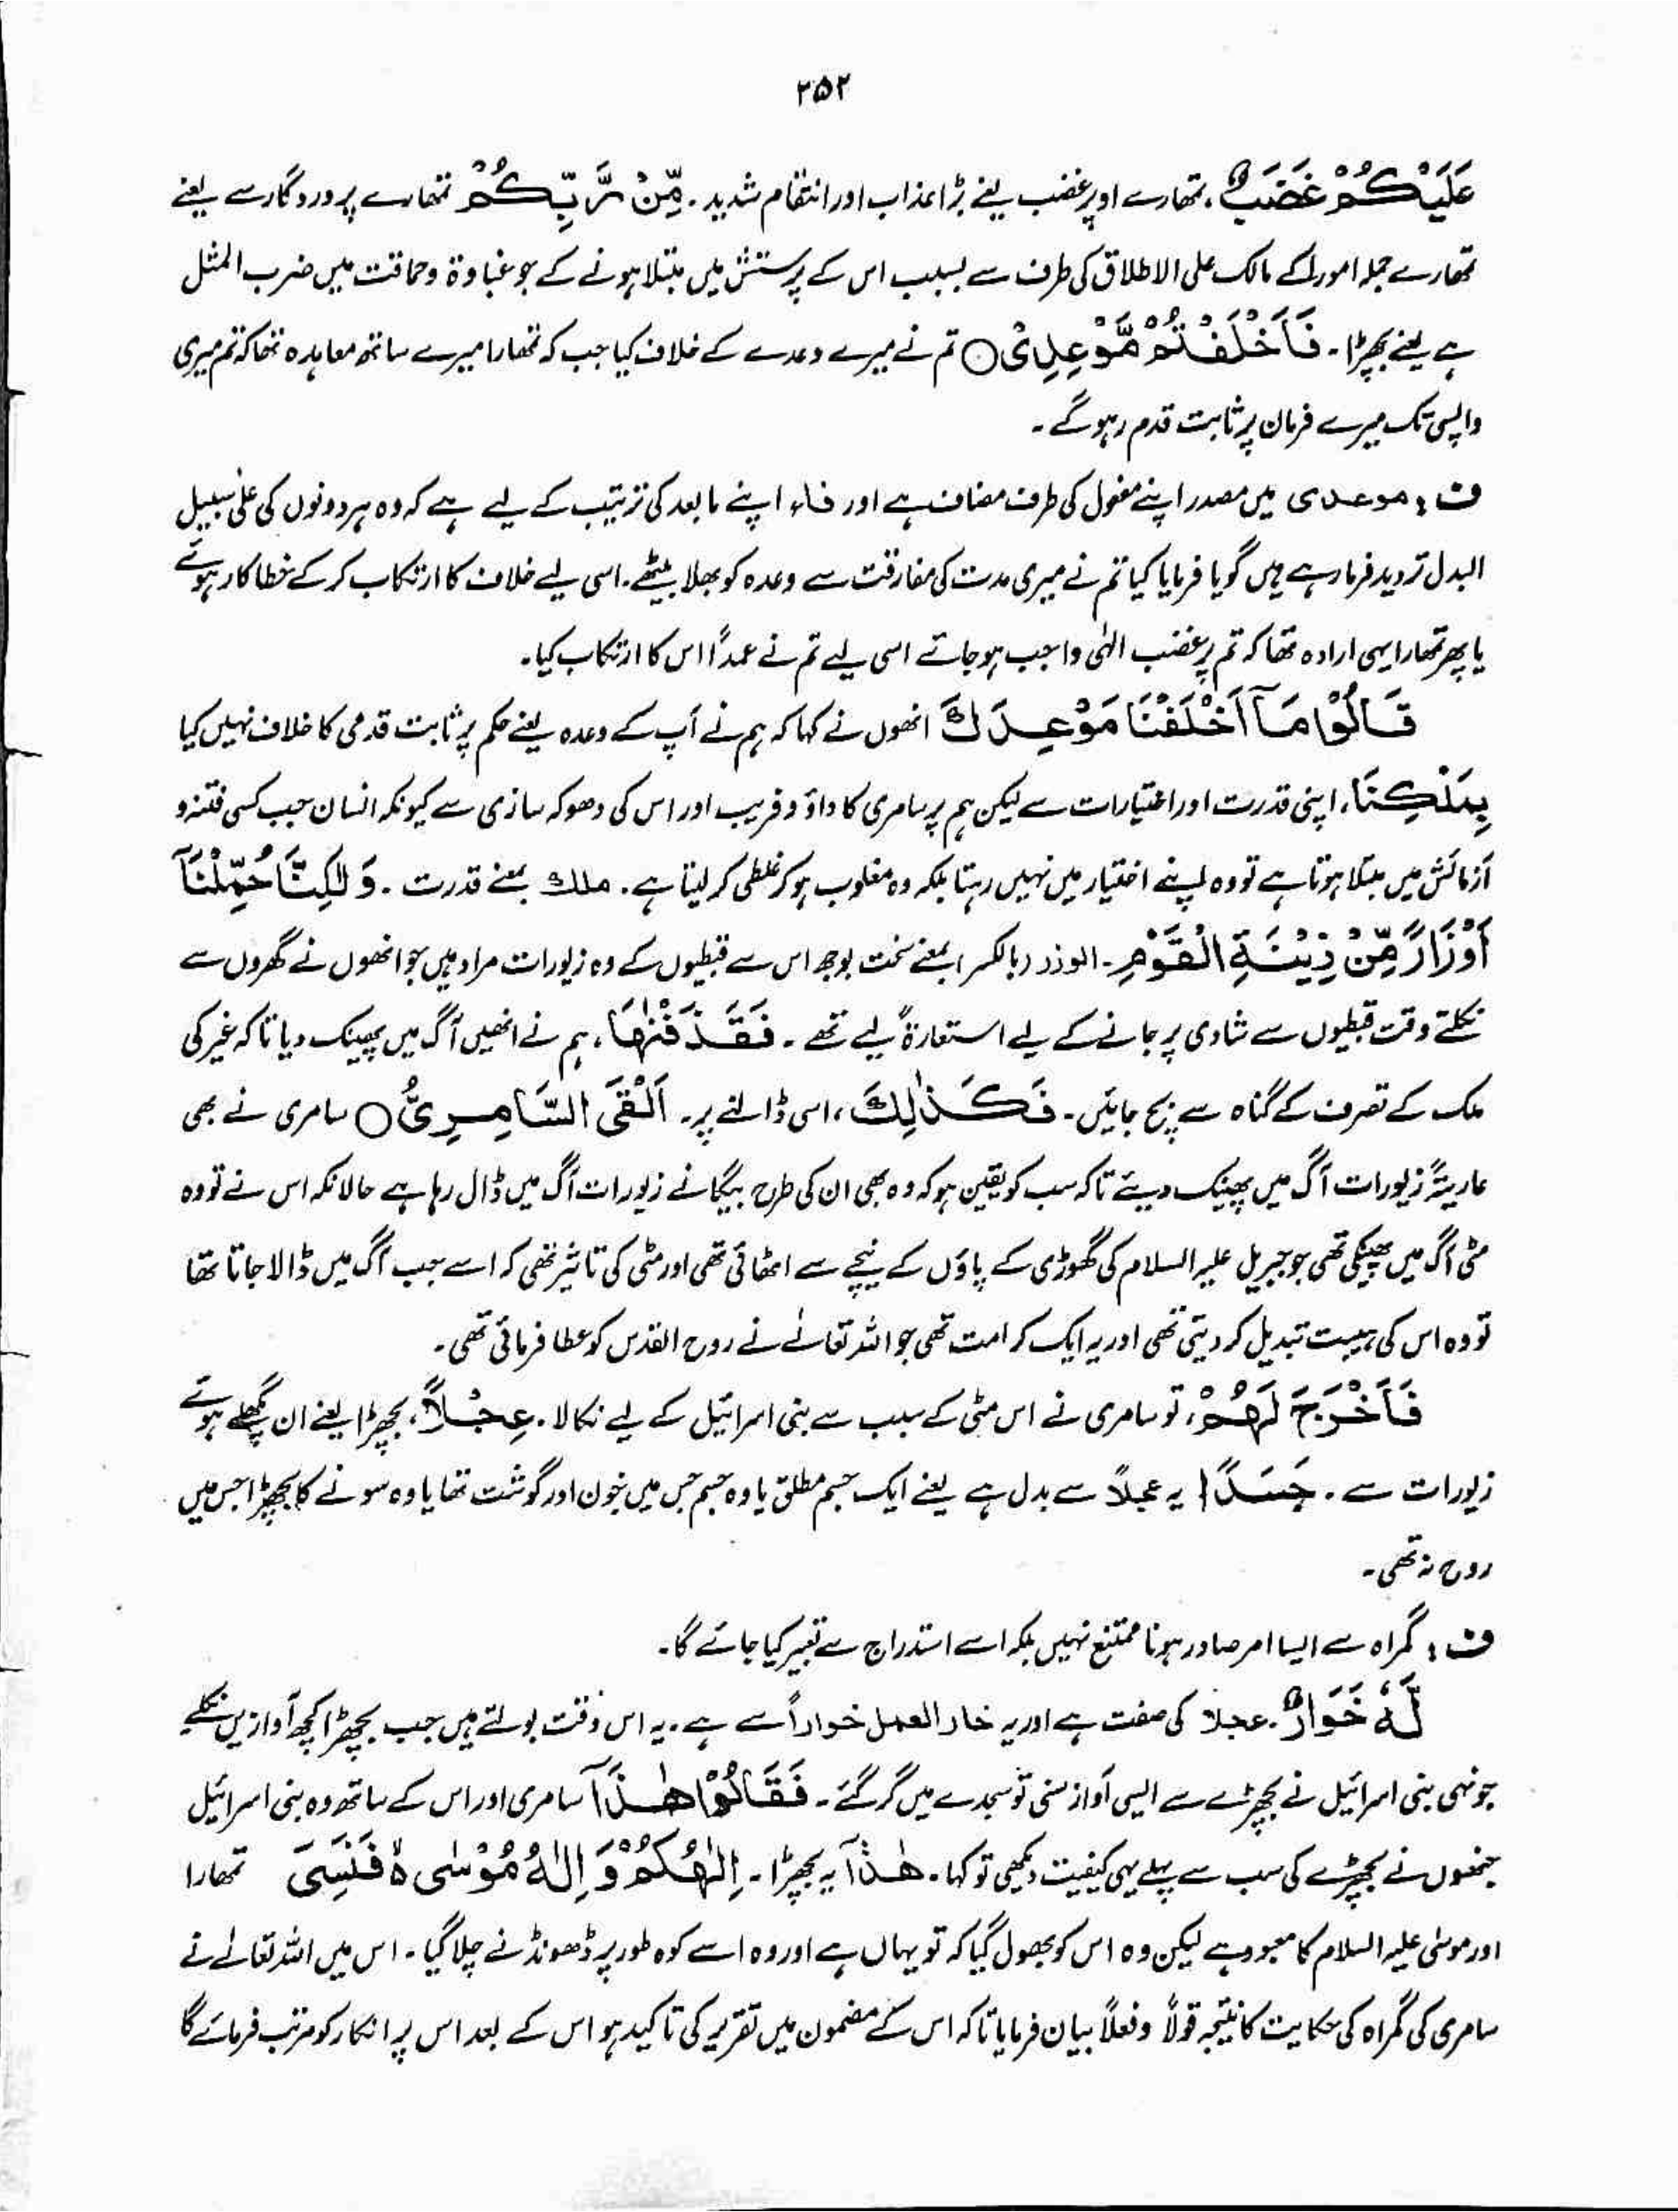 ۲۵۲
عَلَيْكُمْ غَضَبٌ، تمھارے اوپر غضب یعنے بڑا عذاب اور انتقام شدید۔ مِّنْ رَّبِّكُمْ تمھارے پروردگار سے یعنے
تمھارے جملہ امور کے مالک علی الاطلاق کی طرف سے بسبب اس کے پرستش میں مبتلا ہونے کے جو غباوۃ و حماقت میں ضرب المثل
ہے یعنے بچھڑا۔ فَاَخْلَفْتُمْ مَّوْعِدِیْ ○ تم نے میرے وعدے کے خلاف کیا جب کہ تمھارا میرے ساتھ معاہدہ تھا کہ تم میری
واپسی تک میرے فرمان پر ثابت قدم رہو گے۔
ف: موعدی میں مصدر اپنے مفعول کی طرف مضاف ہے اور فاء اپنے مابعد کی ترتیب کے لیے ہے کہ وہ ہر دونوں کی علیٰ سبیل
البدل تردید فرما رہے ہیں گویا فرمایا کیا تم نے میری مدت کی مفارقت سے وعدہ کو بھلا بیٹھے۔ اسی لیے خلاف کا ارتکاب کر کے خطاکار ہوئے
یا پھر تمھارا یہی ارادہ تھا کہ تم پر غضب الٰہی واجب ہو جائے اسی لیے تم نے عمداً اس کا ارتکاب کیا۔
قَالُوْا مَآ اَخْلَفْنَا مَوْعِدَكَ انھوں نے کہا کہ ہم نے آپ کے وعدہ یعنے حکم پر ثابت قدمی کا خلاف نہیں کیا
بِمَلْكِنَا، اپنی قدرت اور اختیارات سے لیکن ہم پر سامری کا داؤ و فریب اور اس کی دھوکہ سازی سے کیونکہ انسان جب کسی فتنہ و
آزمائش میں مبتلا ہوتا ہے تو وہ اپنے اختیار میں نہیں رہتا بلکہ وہ مغلوب ہو کر غلطی کر لیتا ہے۔ ملك بمعنے قدرت۔ وَ لٰكِنَّا حُمِّلْنَآ
اَوْزَارًا مِّنْ زِيْنَةِ الْقَوْمِ۔ الوزر (بالکسر) بمعنے سخت بوجھ اس سے قبطیوں کے وہ زیورات مراد ہیں جو انھوں نے گھروں سے
نکلتے وقت قبطیوں سے شادی پر جانے کے لیے استعارۃً لیے تھے۔ فَقَذَفْنٰهَا، ہم نے انھیں آگ میں پھینک دیا تاکہ غیر کی
ملک کے تصرف کے گناہ سے بچ جائیں۔ فَكَذٰلِكَ، اسی ڈالنے پر۔ اَلْقَى السَّامِرِیُّ ○ سامری نے بھی
عاریۃً زیورات آگ میں پھینک دیئے تاکہ سب کو یقین ہو کہ وہ بھی ان کی طرح بیگانے زیورات آگ میں ڈال رہا ہے حالانکہ اس نے تو وہ
مٹی آگ میں پھینکی تھی جو جبریل علیہ السلام کی گھوڑی کے پاؤں کے نیچے سے اٹھائی تھی اور مٹی کی تاثیر تھی کہ اسے جب آگ میں ڈالا جاتا تھا
تو وہ اس کی ہیئت تبدیل کر دیتی تھی اور یہ ایک کرامت تھی جو اللہ تعالےٰ نے روح القدس کو عطا فرمائی تھی۔
فَاَخْرَجَ لَهُمْ، تو سامری نے اس مٹی کے سبب سے بنی اسرائیل کے لیے نکالا۔ عِجْلًا، بچھڑا یعنے ان پگھلے ہوئے
زیورات سے۔ جَسَدًا یہ عجلاً سے بدل ہے یعنے ایک جسم مطلق یا وہ جسم جس میں خون اور گوشت تھا یا وہ سونے کا بچھڑا جس میں
روح نہ تھی۔
ف: گمراہ سے ایسا امر صادر ہونا ممتنع نہیں بلکہ اسے استدراج سے تعبیر کیا جائے گا۔
لَّهٗ خُوَارٌ۔ عجلا کی صفت ہے اور یہ خار العجل خواراً سے ہے۔ یہ اس وقت بولتے ہیں جب بچھڑا کچھ آوازیں نکالے
جونہی بنی اسرائیل نے بچھڑے سے ایسی آواز سنی تو سجدے میں گر گئے۔ فَقَالُوْا هٰذَآ سامری اور اس کے ساتھ وہ بنی اسرائیل
جنھوں نے بچھڑے کی سب سے پہلے یہی کیفیت دیکھی تو کہا۔ هٰذَآ یہ بچھڑا۔ اِلٰهُكُمْ وَ اِلٰهُ مُوْسٰى ۚ فَنَسِیَ تمھارا
اور موسٰی علیہ السلام کا معبود ہے لیکن وہ اس کو بھول گیا کہ تو یہاں ہے اور وہ اسے کوہ طور پر ڈھونڈنے چلا گیا۔ اس میں اللہ تعالےٰ نے
سامری کی گمراہ کی حکایت کا نتیجہ قولاً و فعلاً بیان فرمایا تاکہ اس کے مضمون میں تقریر کی تاکید ہو اس کے بعد اس پر انکار کو مرتب فرمائے گا